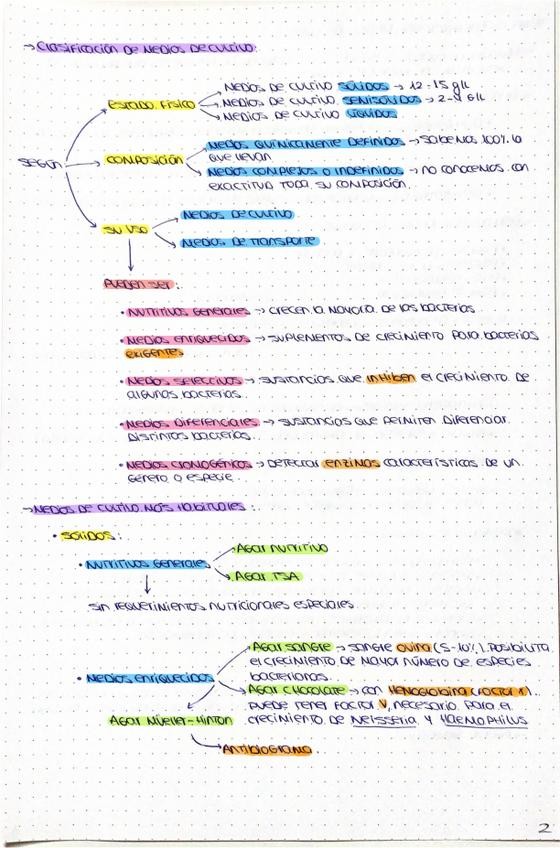 → Clasificación de medios de cultivo:
Medios de cultivo sólidos → 12-15 g/L
Estado físico
Medios de cultivo semisólidos → 2-4 g/L
Medios de cultivo líquidos
Medios químicamente definidos → sabemos 100% lo
Según
Composición
que llevan
Medios complejos o indefinidos → no conocemos con
exactitud toda su composición.
Medios de cultivo
Su uso
Medios de transporte
Pueden ser:
• Nutritivos generales → crecen la mayoría de las bacterias
• Medios enriquecidos → suplementos de crecimiento para bacterias
exigentes
• Medios selectivos → sustancias que inhiben el crecimiento de
algunas bacterias.
• Medios diferenciales → sustancias que permiten diferenciar
distintas bacterias.
• Medios cromogénicos → detectar enzimas características de un
género o especie.
→ Medios de cultivo más habituales:
• Sólidos:
Agar nutritivo
• Nutritivos generales
Agar TSA
sin requerimientos nutricionales especiales
Agar sangre → sangre ovina (5-10%). Posibilita
el crecimiento de mayor número de especies
bacterianas.
• Medios enriquecidos
Agar chocolate → con hemoglobina (factor X).
puede tener factor V, necesario para el
Agar Müeller-Hinton
crecimiento de Neisseria y Haemophilus
Antibiograma
2